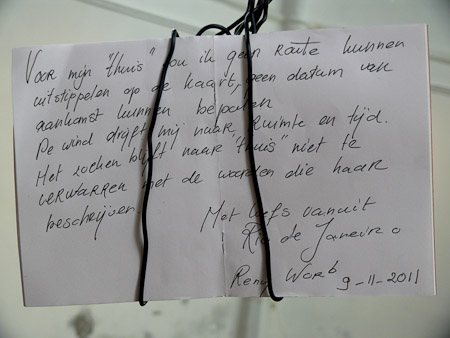 Voor mijn "thuis" zou ik geen route kunnen
uitstippelen op de kaart, geen datum van
aankomst kunnen bepalen
De wind drijft mij naar, Ruimte en tijd.
Het zoeken blijft naar "thuis" niet te
verwarren met de woorden die haar
beschrijven
Met liefs vanuit
Rio de Janeiro
Worb
9-11-2011